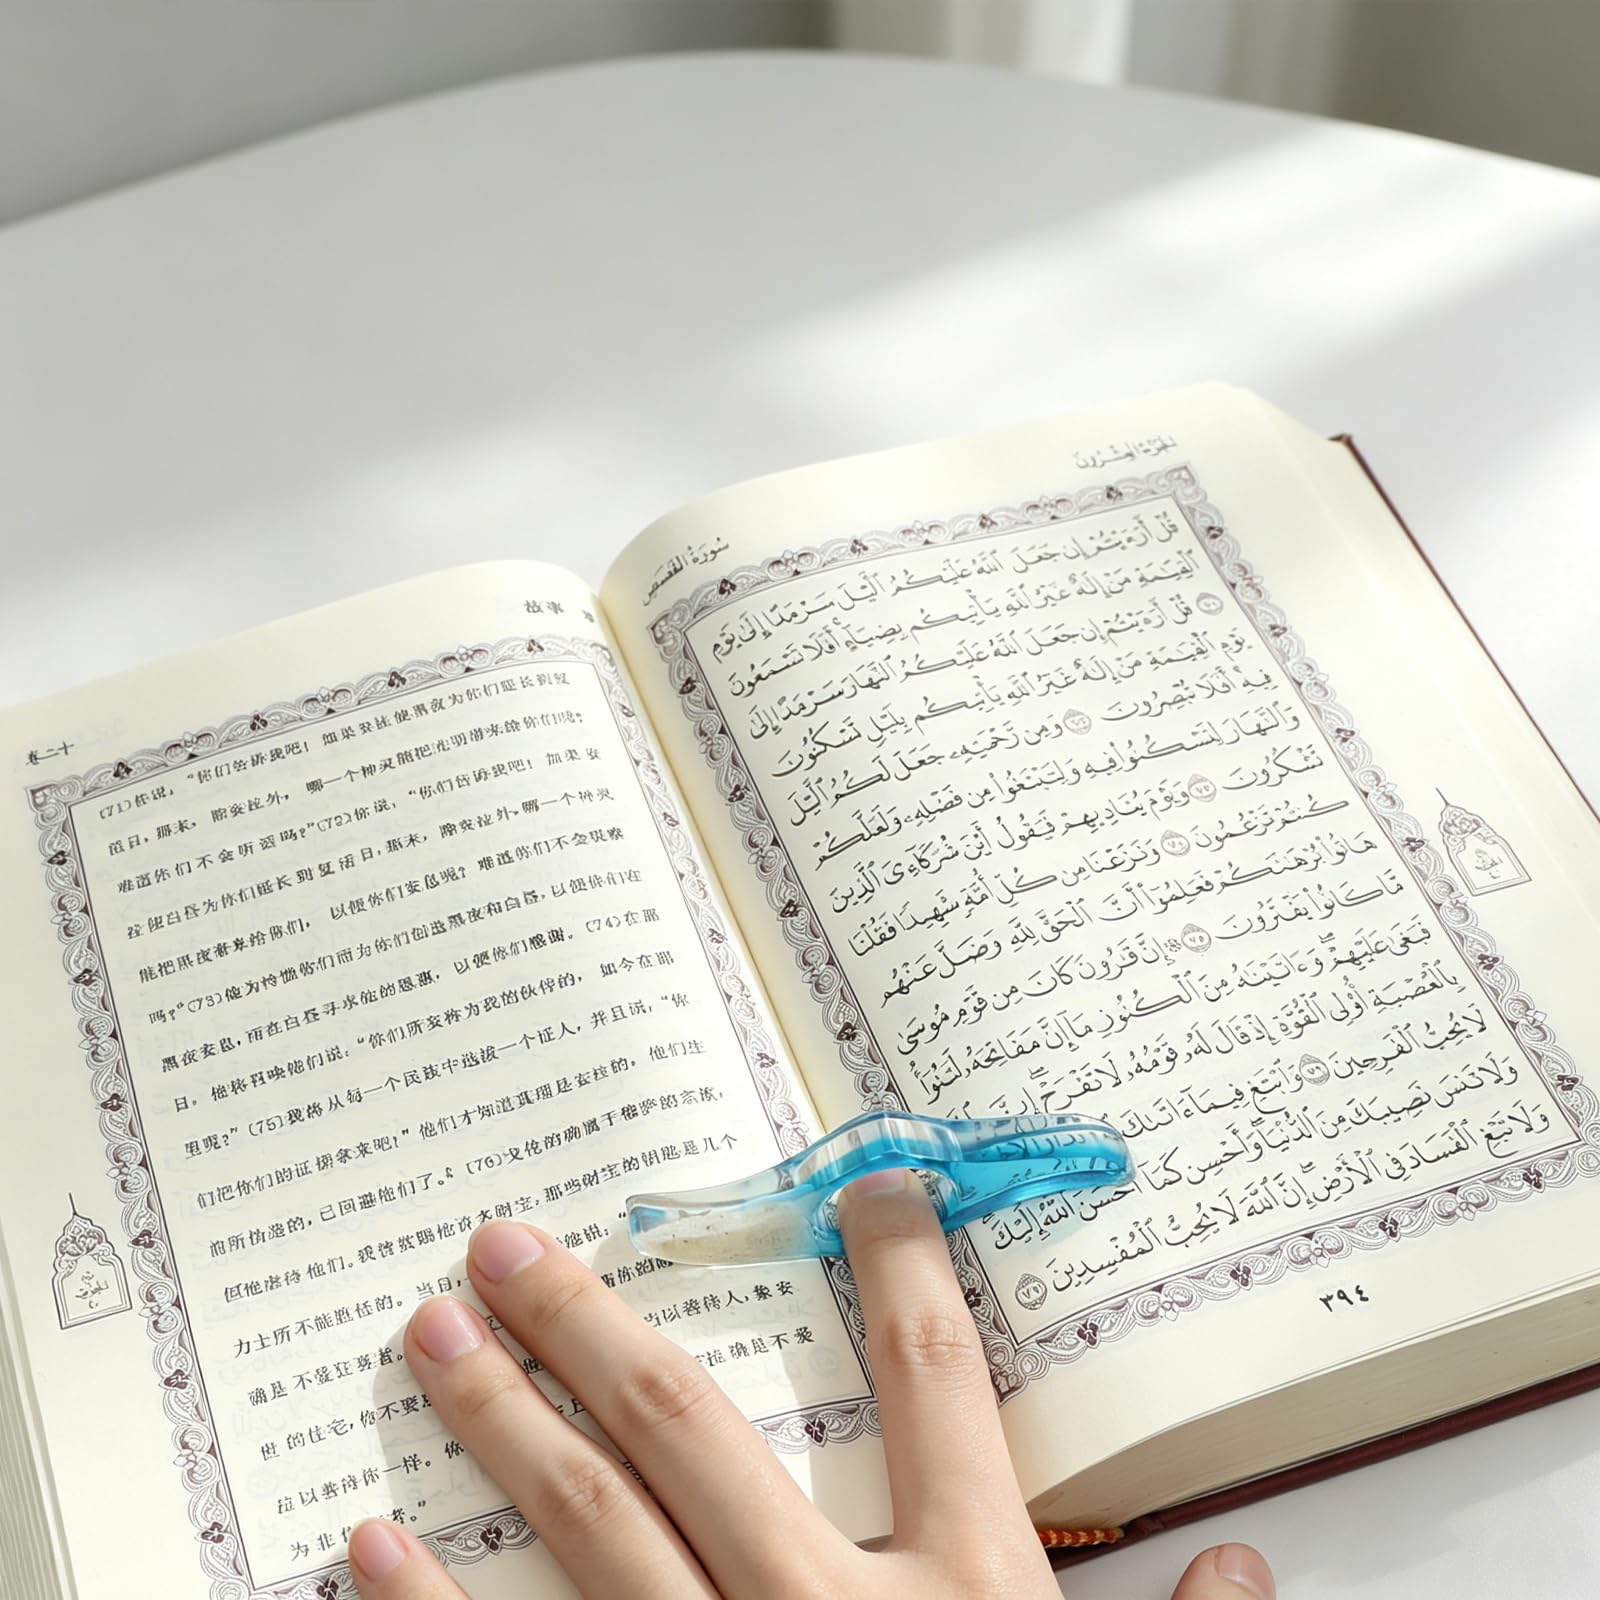 卷二十
故事
(71) 你说，“你们告诉我吧！如果安拉使黑夜为你们延长到复
活日，那末，除安拉外，哪一个神灵能把光明带来给你们呢？
难道你们不会听话吗？”(72)你说，“你们告诉我吧！如果安
拉使白昼为你们延长到复活日，那末，除安拉外，哪一个神灵
能把黑夜带来给你们，以便你们安息呢？难道你们不会观察
吗？”(73)他为怜恤你们而为你们创造黑夜和白昼，以便你们在
黑夜安息，而在白昼寻求他的恩惠，以便你们感谢。(74)在那
日，他将召唤他们说：“你们所妄称为我的伙伴的，如今在那
里呢？”(75)我将从每一个民族中选拔一个证人，并且说：“你
们把你们的证据拿来吧！”他们才知道真理是安拉的，他们生
前所伪造的，已回避他们了。(76)戈伦的确属于穆萨的宗族，
但他虐待他们。我曾赏赐他许多财宝，那些财宝的钥匙是几个
力士所不能胜任的。当日，他说：“
确是不爱狂喜者。你的
世的住宅，你不要当以善待人，像安
拉以善待你一样。你上拉确是不爱
为非者。”
سُورَةُ القَصَصِ
الجُزْءُ العِشْرُونَ
قُلْ أَرَءَيْتُمْ إِن جَعَلَ ٱللَّهُ عَلَيْكُمُ ٱلَّيْلَ سَرْمَدًا إِلَىٰ يَوْمِ
ٱلْقِيَٰمَةِ مَنْ إِلَٰهٌ غَيْرُ ٱللَّهِ يَأْتِيكُم بِضِيَآءٍ أَفَلَا تَسْمَعُونَ
٧١ قُلْ أَرَءَيْتُمْ إِن جَعَلَ ٱللَّهُ عَلَيْكُمُ ٱلنَّهَارَ سَرْمَدًا إِلَىٰ
يَوْمِ ٱلْقِيَٰمَةِ مَنْ إِلَٰهٌ غَيْرُ ٱللَّهِ يَأْتِيكُم بِلَيْلٍ تَسْكُنُونَ
فِيهِ أَفَلَا تُبْصِرُونَ ٧٢ وَمِن رَّحْمَتِهِۦ جَعَلَ لَكُمُ ٱلَّيْلَ
وَٱلنَّهَارَ لِتَسْكُنُوا۟ فِيهِ وَلِتَبْتَغُوا۟ مِن فَضْلِهِۦ وَلَعَلَّكُمْ
تَشْكُرُونَ ٧٣ وَيَوْمَ يُنَادِيهِمْ فَيَقُولُ أَيْنَ شُرَكَآءِىَ ٱلَّذِينَ
كُنتُمْ تَزْعُمُونَ ٧٤ وَنَزَعْنَا مِن كُلِّ أُمَّةٍ شَهِيدًا فَقُلْنَا
هَاتُوا۟ بُرْهَٰنَكُمْ فَعَلِمُوٓا۟ أَنَّ ٱلْحَقَّ لِلَّهِ وَضَلَّ عَنْهُم
مَّا كَانُوا۟ يَفْتَرُونَ ٧٥ إِنَّ قَٰرُونَ كَانَ مِن قَوْمِ مُوسَىٰ
فَبَغَىٰ عَلَيْهِمْ وَءَاتَيْنَٰهُ مِنَ ٱلْكُنُوزِ مَآ إِنَّ مَفَاتِحَهُۥ لَتَنُوٓأُ
بِٱلْعُصْبَةِ أُو۟لِى ٱلْقُوَّةِ إِذْ قَالَ لَهُۥ قَوْمُهُۥ لَا تَفْرَحْ إِنَّ ٱللَّهَ
لَا يُحِبُّ ٱلْفَرِحِينَ ٧٦ وَٱبْتَغِ فِيمَآ ءَاتَىٰكَ ٱلدَّارَ
وَلَا تَنسَ نَصِيبَكَ مِنَ ٱلدُّنْيَا وَأَحْسِن كَمَآ أَحْسَنَ ٱللَّهُ إِلَيْكَ
وَلَا تَبْغِ ٱلْفَسَادَ فِى ٱلْأَرْضِ إِنَّ ٱللَّهَ لَا يُحِبُّ ٱلْمُفْسِدِينَ ٧٧
٣٩٤